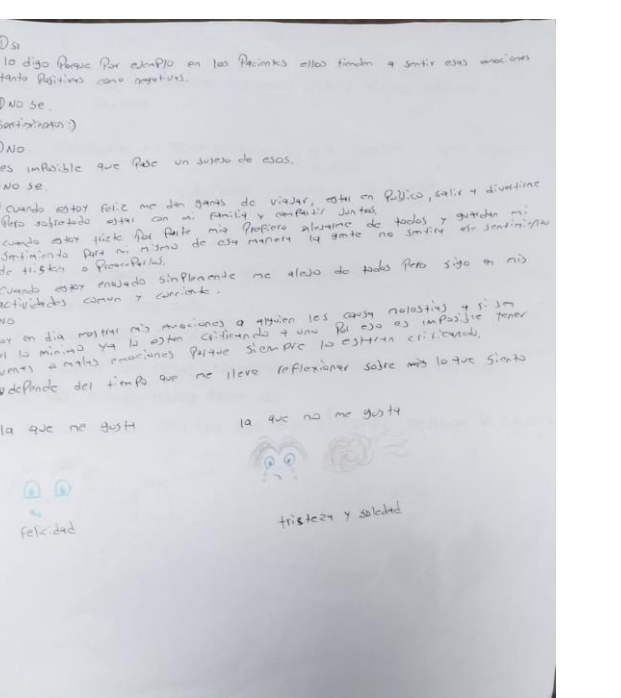 SI
lo digo Porque Por ejemplo en los Pacientes ellos tienden a sentir esas emociones
tanto Positivas como negativas.
NO se.
NO
es imPosible que Pase un suseso de esos.
NO se
cuando estoy feliz me dan ganas de viajar, estar en Público, salir a divertirme
Pero sobretodo estar con mi familia y compartir Juntos,
cuando estoy triste Por Parte mia Prefiero alejarme de todos y guardar mi
sentimiento Para mi mismo de esa manera la gente no sentira ese sentimiento
de tristeza o
cuando estoy enojado simPlemente me alejo de todos Pero sigo en mis
actividades comun y corriente.
NO
en dia mostrar mis emociones a alguien les causa molostias y si
lo minimo ya lo estan criticando a uno Por eso es imPosible tener
o malas emociones Porque siempre lo estaran criticando,
dePende del tiemPo que me lleve reflexionar sobre lo que siento
la que me gusta
la que no me gusta
felicidad
tristeza y soledad